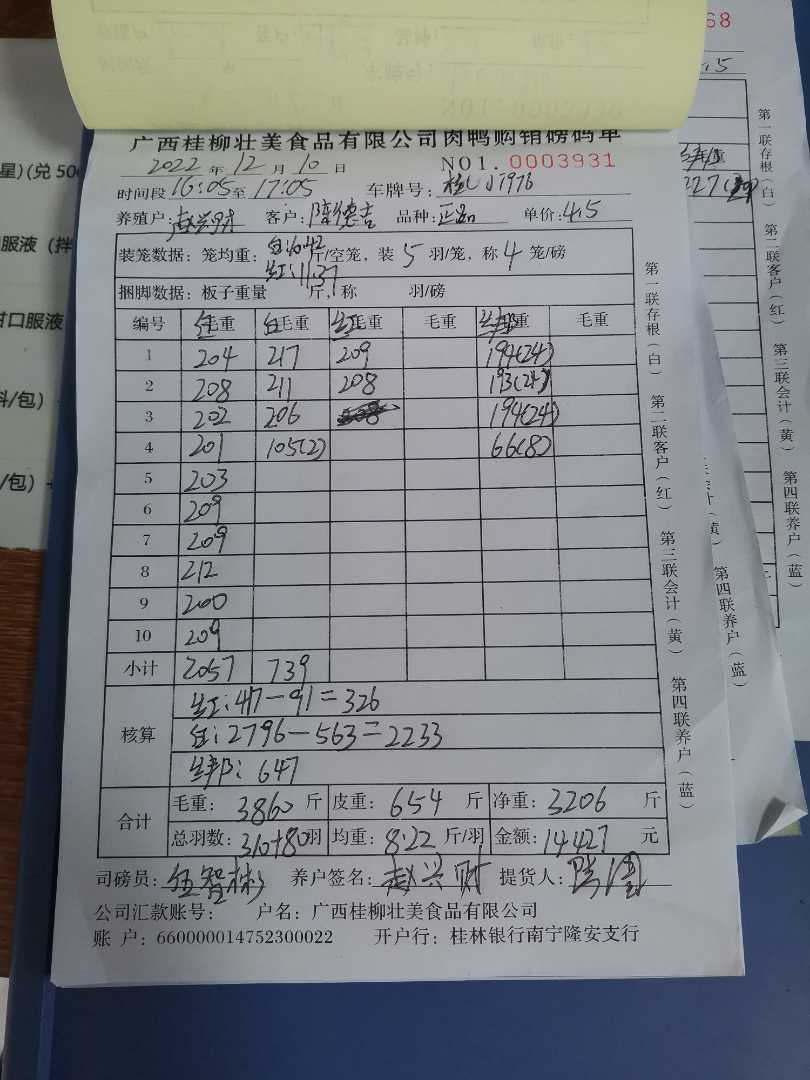 68
4.5
广西桂柳壮美食品有限公司肉鸭购销磅码单
2022 年 12 月 10 日 NO1. 0003931
时间段 16:05 至 17:05 车牌号:
养殖户: 赵兴财 客户: 陈德吉 品种: 正品 单价: 4.5
装笼数据: 笼均重: 白:16.42 斤/空笼, 装 5 羽/笼, 称 4 笼/磅
红:11.37
捆脚数据: 板子重量 斤, 称 羽/磅
编号 毛重 毛重 毛重 毛重 毛重 毛重
1 204 217 209 194(24)
2 208 211 208 193(24)
3 202 206 194(24)
4 201 105(2) 66(8)
5 203
6 209
7 209
8 212
9 200
10 209
小计 2057 739
核算 红:417-91=326
白:2796-563=2233
绑: 647
合计 毛重: 3860 斤 皮重: 654 斤 净重: 3206 斤
总羽数: 310+80 羽 均重: 8.22 斤/羽 金额: 14427 元
司磅员: 养户签名: 赵兴财 提货人:
公司汇款账号: 户名: 广西桂柳壮美食品有限公司
账 户: 660000014752300022 开户行: 桂林银行南宁隆安支行
第一联存根(白) 第二联客户(红) 第三联会计(黄) 第四联养户(蓝)
第一联存根(白) 第二联客户(红) 第三联会计(黄) 第四联养户(蓝)
第四联养户(蓝)